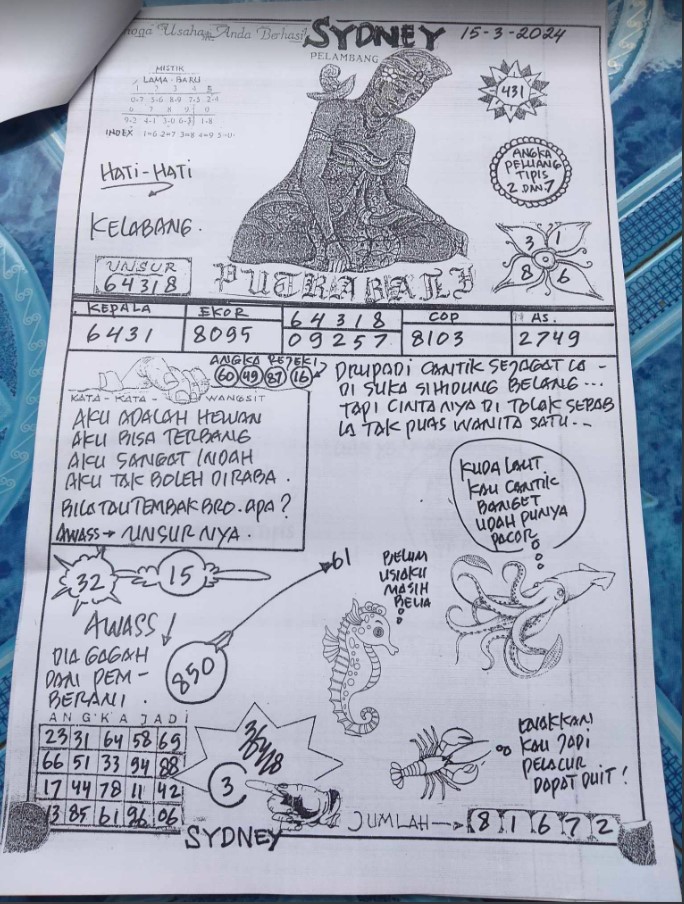 Usaha Anda Berhasil
SYDNEY 15-3-2024
PELAMBANG
MISTIK
LAMA-BARU
1 2 3 4 5
0-7 5-6 8-9 7-5 2-4
6 7 8 9 0
9-2 4-1 3-0 6-3 1-8
INDEX 1=6 2=7 3=8 4=9 5=0
431
ANGKA
PELUANG
TIPIS
2 DAN 7
HATI-HATI
KELABANG.
3 1
8 6
UNSUR
64318
PUTRA BALI
KEPALA EKOR 64318 COP AS.
6431 8095 09257 8103 2749
ANGKA REJEKI
60 49 87 16
KATA-KATA WANGSIT
AKU ADALAH HEWAN
AKU BISA TERBANG
AKU SANGAT INDAH
AKU TAK BOLEH DIRABA.
BILA TAU TEMBAK BRO. APA?
AWASS → UNSURNYA.
DRUPADI CANTIK SEJAGAT LA-
DI SUKA SIHIDUNG BELANG...
TAPI CINTANYA DI TOLAK SEBAB
LA TAK PUAS WANITA SATU...
KUDA LAUT
KAU CANTIK
BANGET
UDAH PUNYA
PACOR
32 15
61
BELUM
USIAKU
MASIH
BELIA
AWASS
DIA GAGAH
DAN PEM-
BERANI.
850
ANGKA JADI
23 31 64 58 69
66 51 33 94 88
17 44 78 11 42
13 85 61 96 06
3
KAU JADI
PELACUR
DAPAT DUIT!
JUMLAH → 8 1 6 7 2
SYDNEY